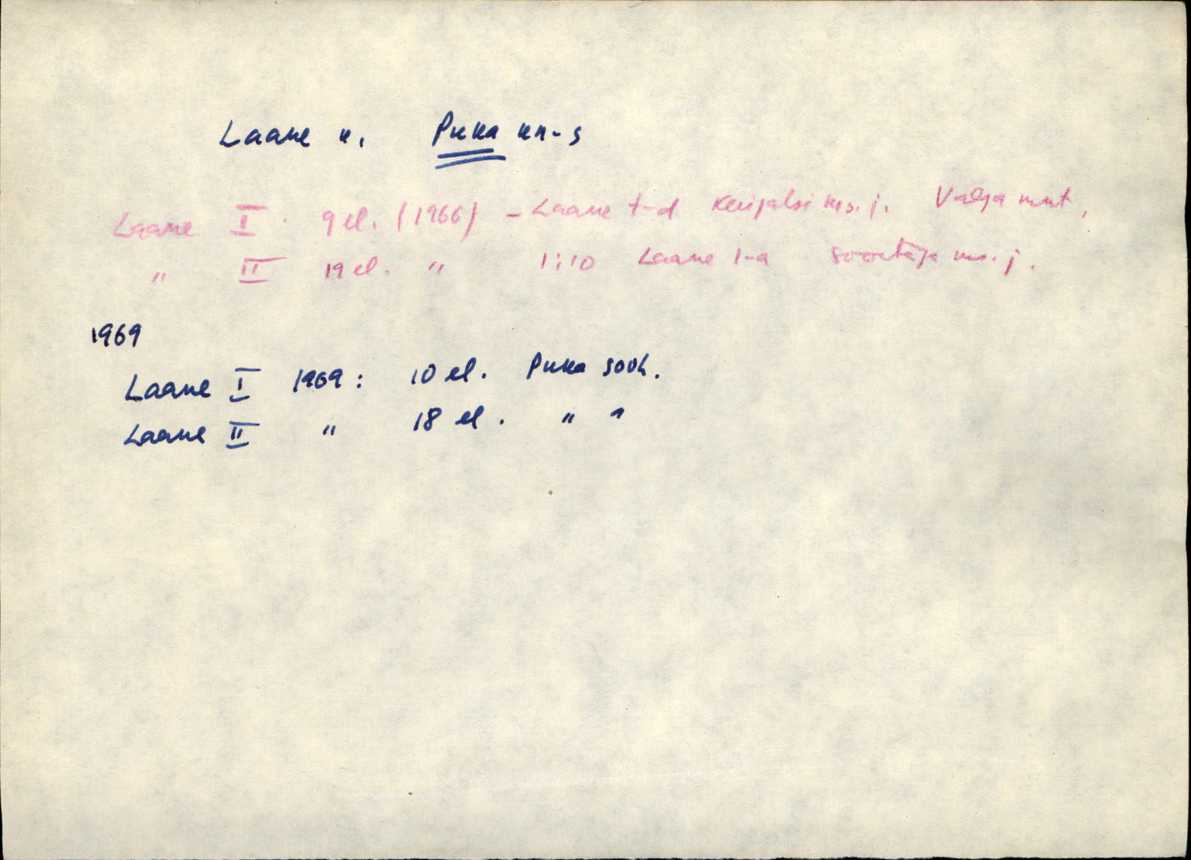 Laane k. Puka kn-s
Laane I. 9 el. (1966) – Laane t-d ms. j. Valga mnt,
" II 19 el. " 1:10 Laane 1-a ms. j.
1969
Laane I 1969: 10 el. Puka sovh.
Laane II " 18 el. " "